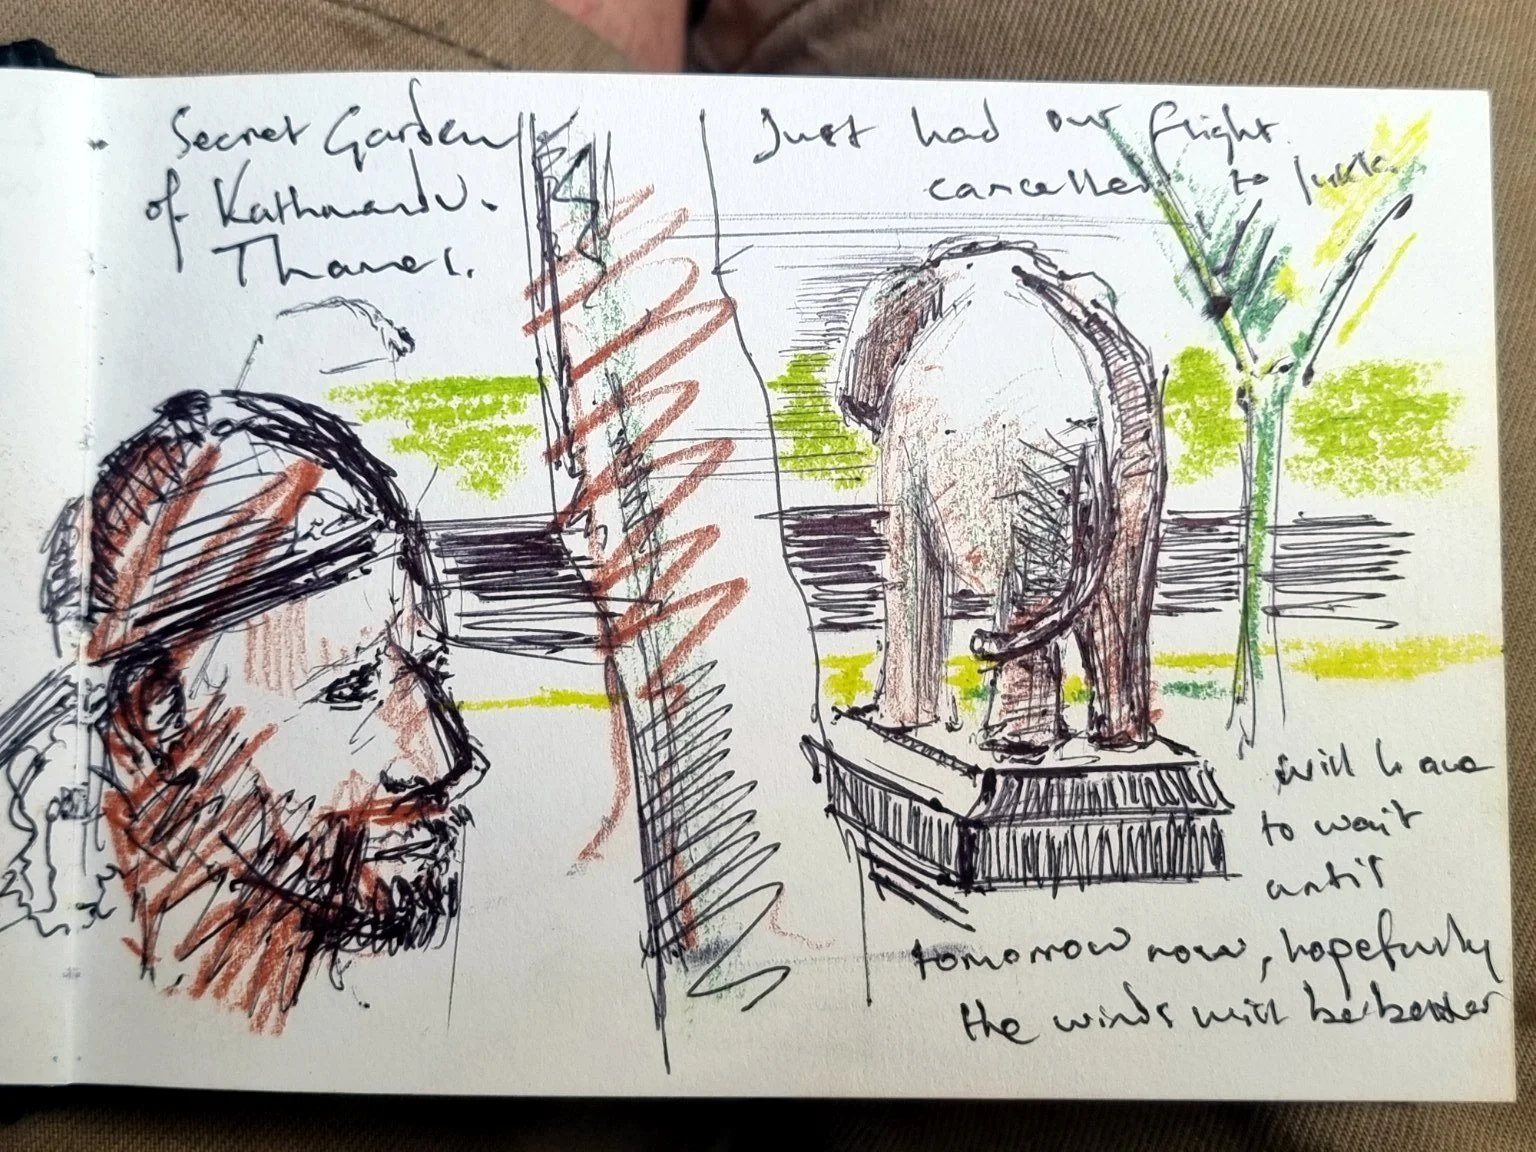 Secret Garden
of Kathmandu.
Thamel.
Just had our flight
cancelled to lukla
will have
to wait
until
tomorrow now, hopefully
the winds will be better